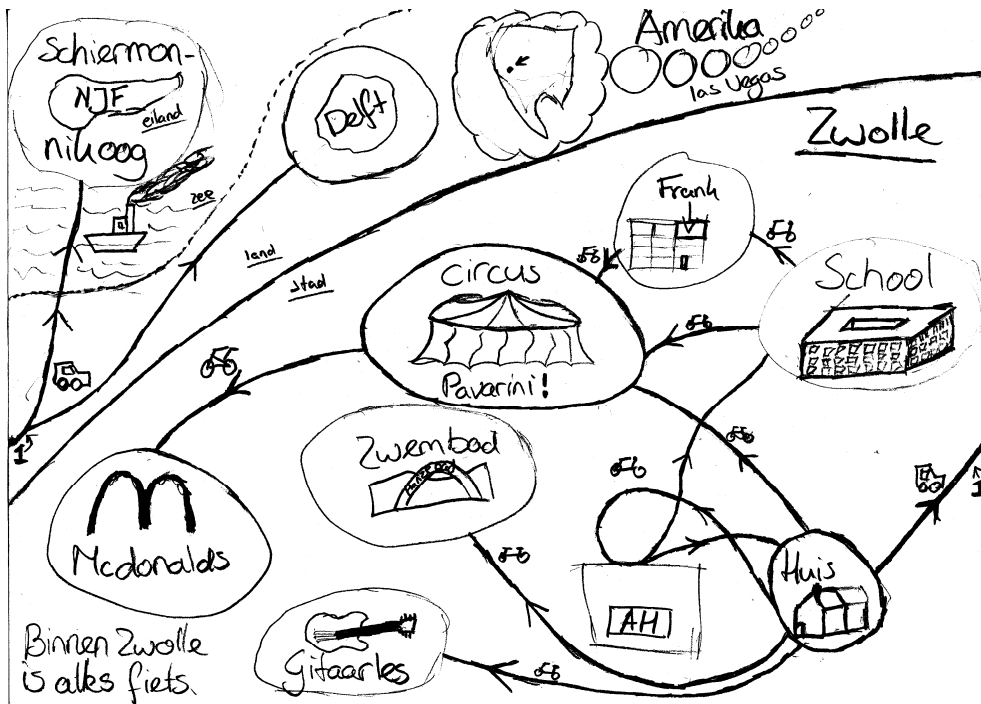 Schiermon-
NJF
eiland
nikoog
zee
Delft
Amerika
las Vegas
Zwolle
land
stad
Frank
School
circus
Pavarini!
1
Zwembad
1
Mcdonalds
Huis
AH
Gitaarles
Binnen Zwolle
is alles fiets.